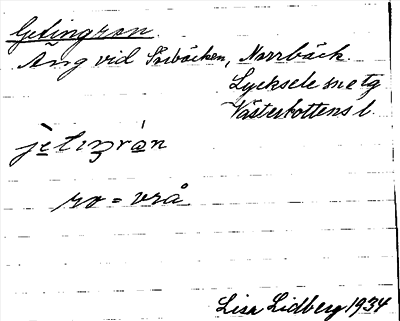 Getingron.
Äng vid Sörbäcken, Norrbäck.
Lycksele sn etg
Västerbottens l.
jètıŋrón
ro = vrå
Lisa Lidberg 1934